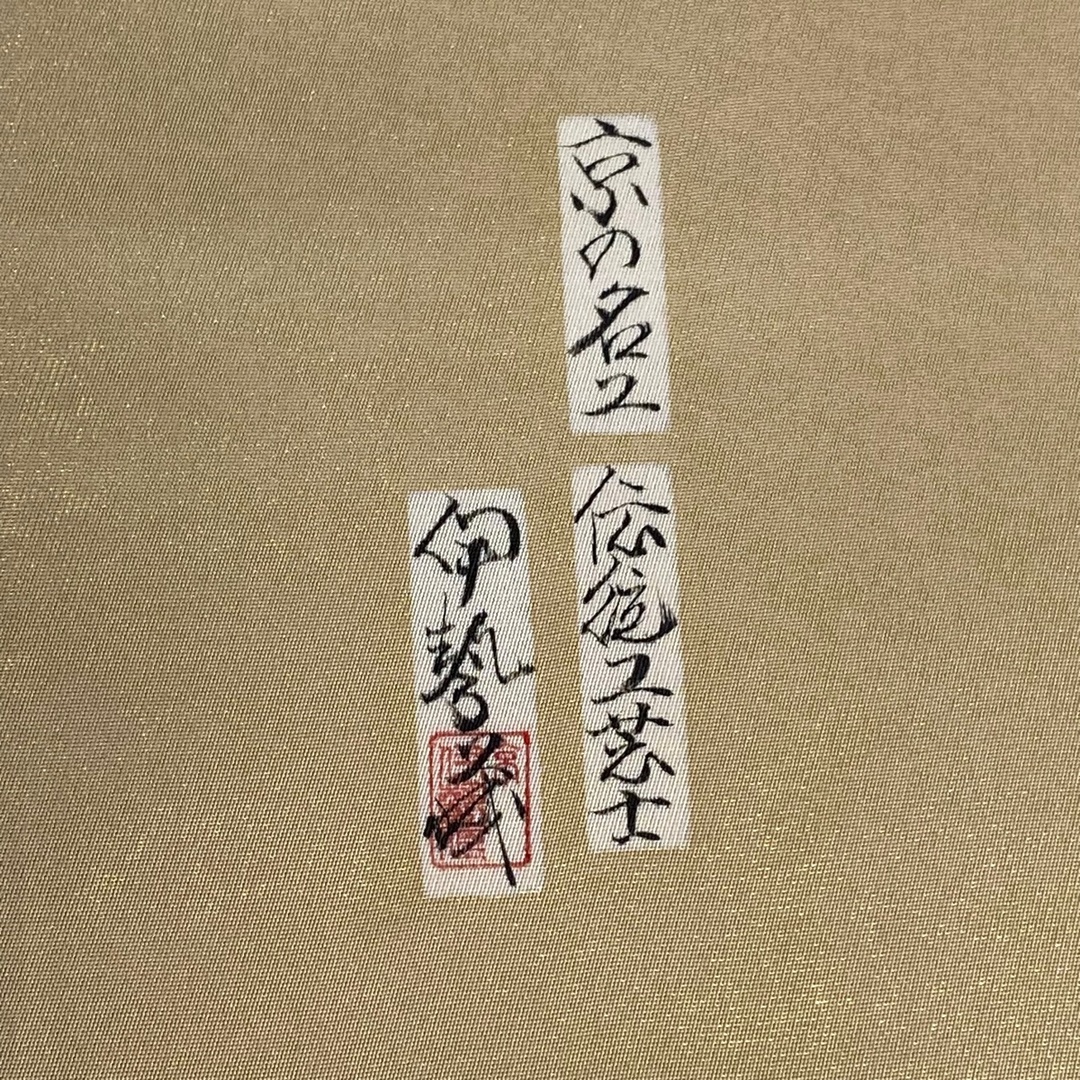 京の名工
伝統工芸士
伊勢